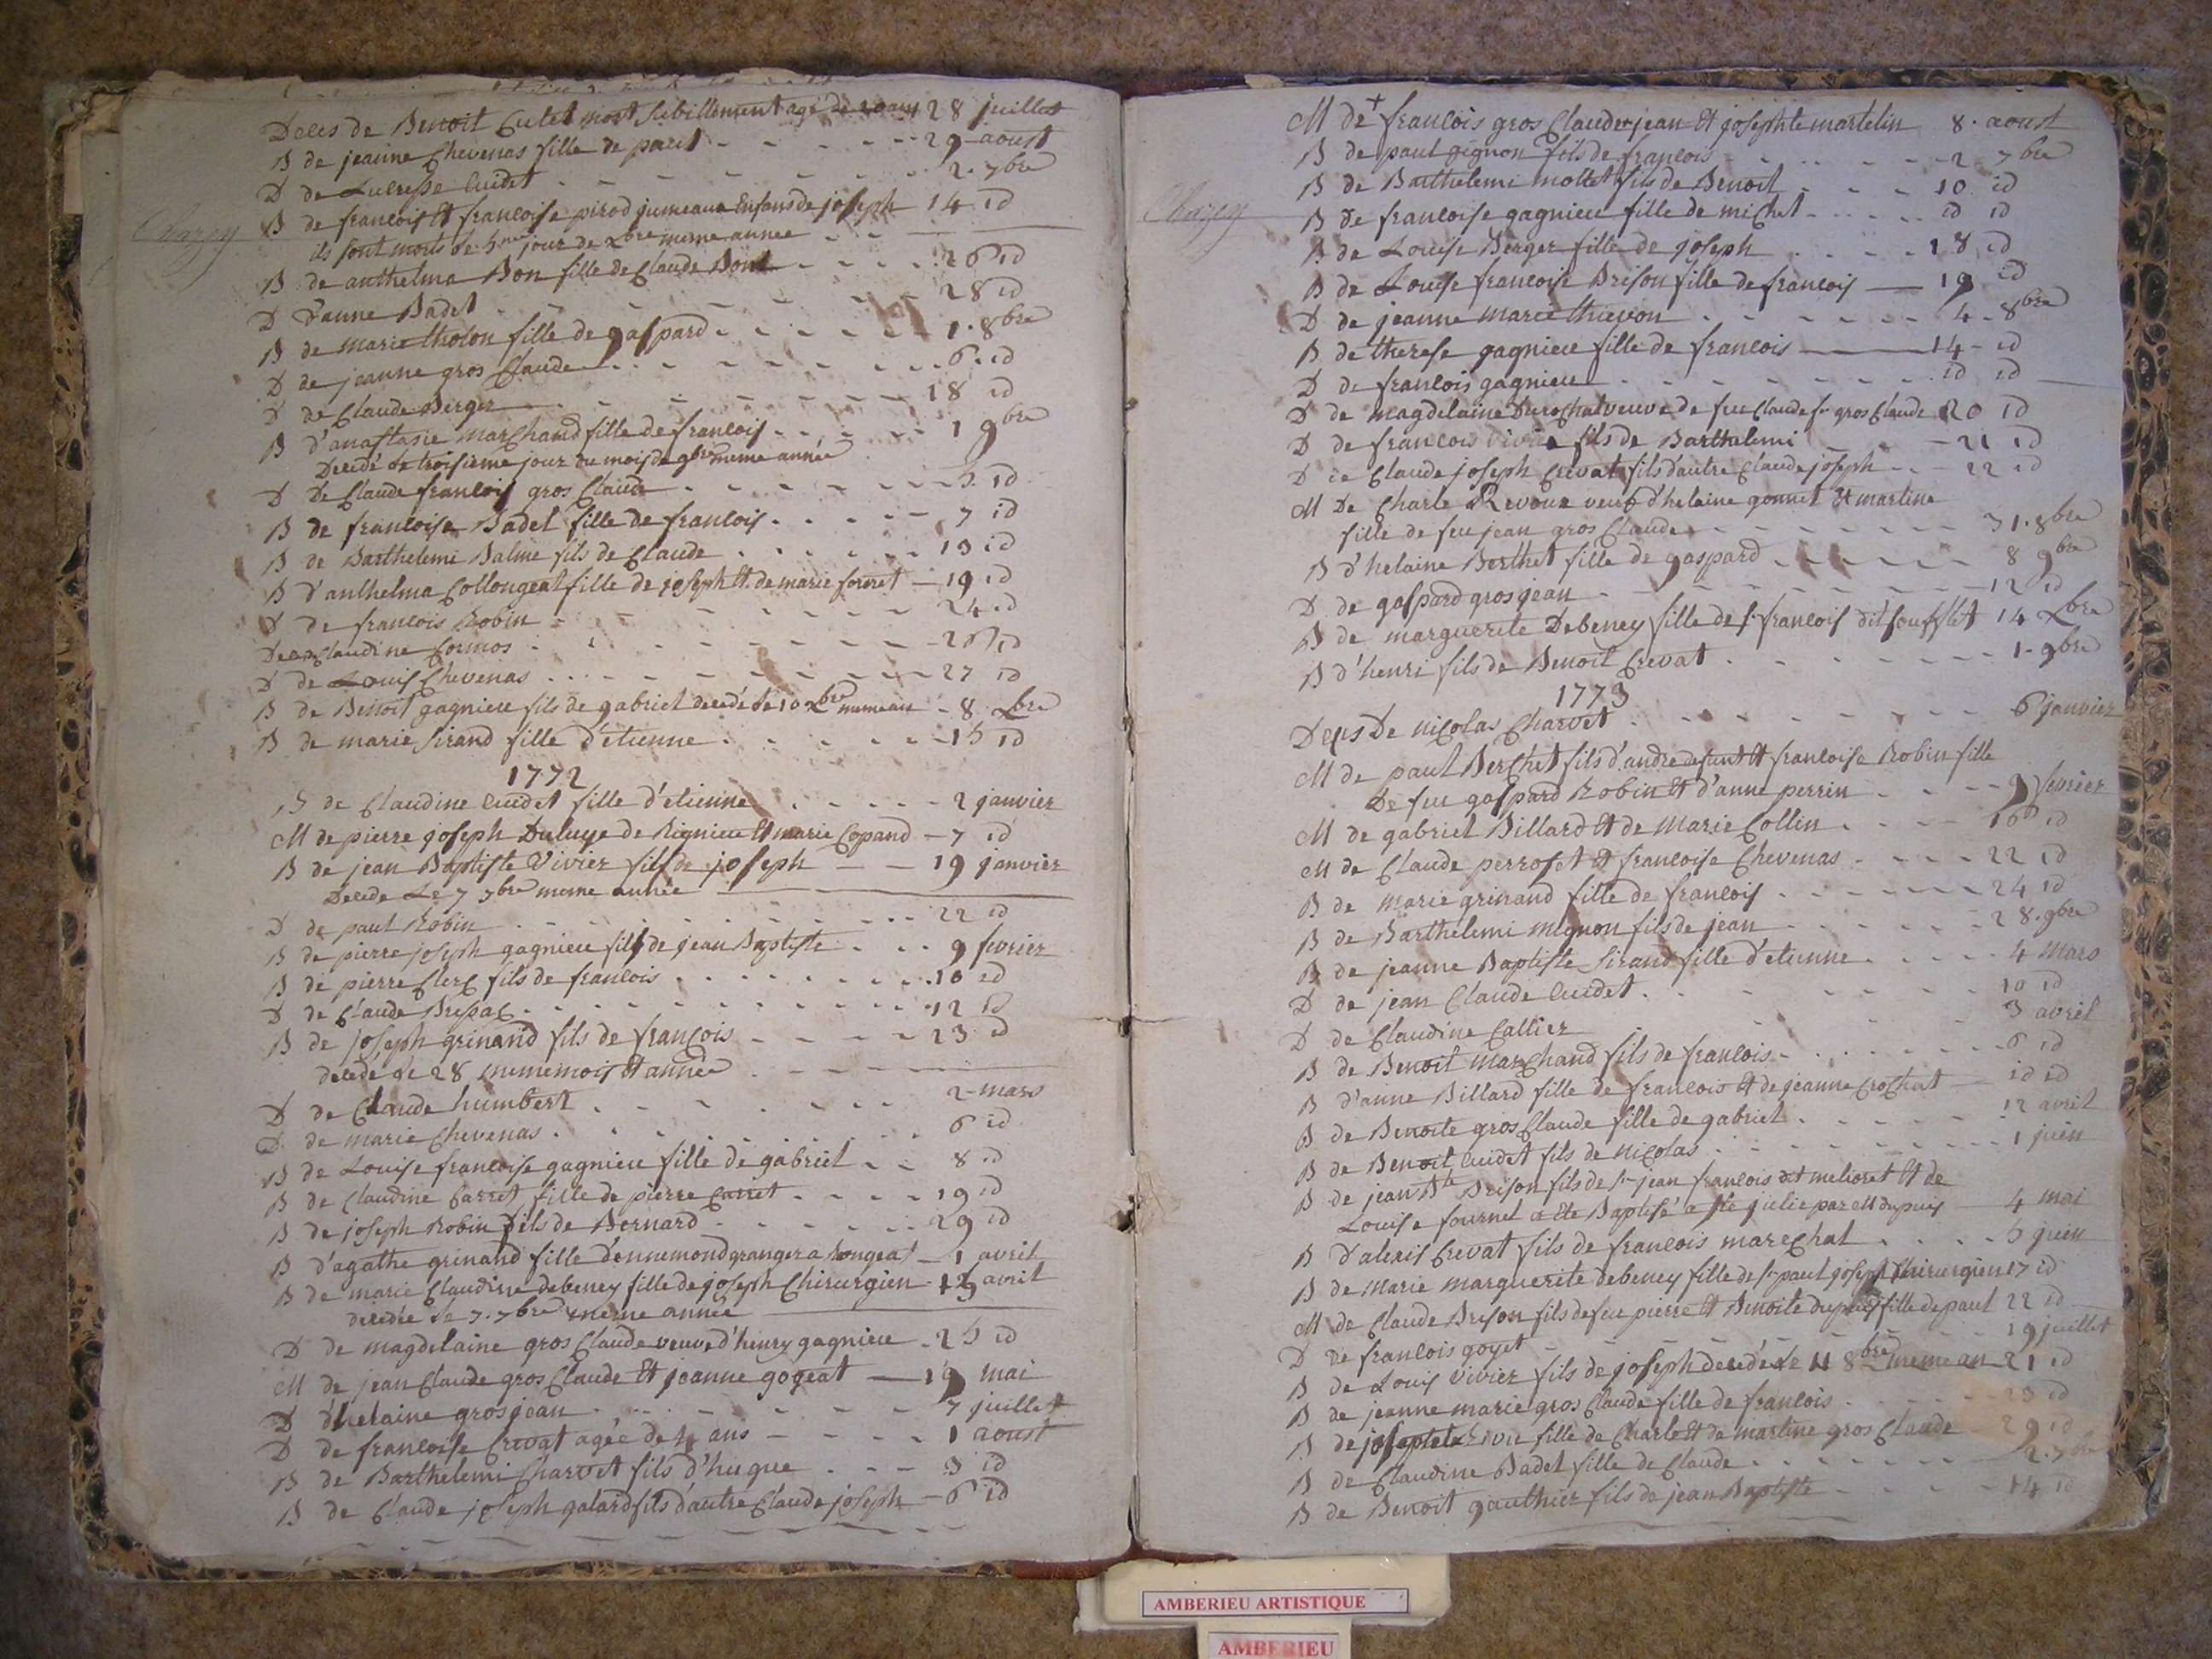 Deces de Benoit Cutet mort subitlement agé de ans 28 juillet
B de jeanne Chevenas fille de - - - - - 29 aoust
D de Lucresse Cuidet - - - - - 2. 7bre
Chazey
B de francois et francoise pirod jumeaux Enfans de joseph 14 id
ils sont morts le 5me jour de Xbre meme année
B de anthelma Bon fille de Claude Bon - - - - 26 id
D d'anne Badet - - - - - 28 id
B de marie tholon fille de gaspard - - - - - 1. 8bre
D de jeanne gros Claude - - - - - 6. id
D de Claude Berger - - - - - 18 id
B d'anastasie marchand fille de francois - - - - - 1 9bre
Decedé le troisieme jour du mois de 9bre meme année
D De Claude francois gros Claude - - - - - 5 id
B de francoise Badet fille de francois - - - - 7 id
B de Barthelemi Balme fils de Claude - - - - - 13 id
B d'anthelma Collongeat fille de joseph et de marie fornet - 19 id
D de francois Robin - - - - - 24 id
Deces Claudine Cormos - - - - - 26 id
D de Louis Chevenas - - - - - 27 id
B de Benoit gagnieu fils de gabriel decedé le 10 Xbre meme an - 8 Xbre
B de marie Sirand fille d'etienne - - - - - 15 id
1772
B de Claudine Cuidet fille d'etienne - - - - - 2 janvier
M de pierre joseph de Rignieu et marie Copand - 7 id
B de jean Baptiste Vivier fils de joseph - - 19 janvier
Decede Le 7 7bre meme année
D de paul Robin - - - - - 22 id
B de pierre joseph gagnieu fils de jean Baptiste - - - 9 fevrier
B de pierre Clerc fils de francois - - - - - 10 id
D de Claude Brisac - - - - - 12 id
B de joseph grinand fils de francois - - - - 23 id
decedé le 28 meme mois et année
D de Claude humbert - - - - - 2 mars
D de marie Chevenas - - - - - 6 id
B de Louise francoise gagnieu fille de gabriel - - 8 id
B de Claudine Carret fille de pierre Carret - - - - 19 id
B de joseph Robin fils de Bernard - - - - - 29 id
B d'agathe grinand fille d'ennemond granger a Rongeat - 1 avril
B de marie Claudine debeney fille de joseph Chirurgien 13 avril
decedée le 7. 7bre meme année
D de magdelaine gros Claude veuve d'henry gagnieu - 25 id
M de jean Claude gros Claude et jeanne gogeat - 19 mai
D d'helaine gros jean - - - - - 7 juillet
D de francoise Crevat agée de 4 ans - - - - 1 aoust
B de Barthelemi Charvet fils d'hugue - - - 3 id
B de Claude joseph galard fils d'autre Claude joseph - 6 id
M de + francois gros Claude jean et josephte martelin 8. aoust
B de paul gignon fils de francois - - - - - 2 7bre
B de Barthelemi mottet fils de Benoit - - - 10 id
Chazey
B de francoise gagnieu fille de michel - - - - - id id
B de Louise Berger fille de joseph - - - - 18 id
B de Louise francoise Brison fille de francois - 19 id
D de jeanne marie thievon - - - - - 4 8bre
B de therese gagnieu fille de francois - 14 - id
D de francois gagnieu - - - - - id id
D de magdelaine Durochat veuve de feu Claude fr gros Claude 20 id
D de francois Vivier fils de Barthelemi - - - 21 id
D de Claude joseph Crevat fils d'autre Claude joseph - - 22 id
M De Charle Revoux veuf d'helaine gonnet et martine
fille de feu jean gros Claude - - - - - 31. 8bre
B d'helaine Berthet fille de gaspard - - - - - 8 9bre
D de gaspard gros jean - - - - - 12 id
B de marguerite Debeney fille de Sr francois dit soufflet 14 Xbre
B d'henri fils de Benoit Crevat - - - - - 1. 9bre
1773
Deces De nicolas Charvet - - - - - 6 janvier
M de paul Berchet fils d'andre defunt et francoise Robin fille
De feu gaspard Robin et d'anne perrin - - - - 9 fevrier
M de gabriel Billard et de Marie Collin - - - - 16 id
M de Claude perroset et francoise Chevenas - - - - 22 id
B de marie grinand fille de francois - - - - - 24 id
B de Barthelemi mignon fils de jean - - - - - 28. 9bre
B de jeanne Baptiste Sirand fille d'etienne - - - - 4 mars
D de jean Claude Cuidet - - - - - 10 id
D de Claudine Callier - - - - - 3 avril
B de Benoit marchand fils de francois - - - - - 6 id
B d'anne Billard fille de francois et de jeanne Crochat - id id
B de Benoite gros Claude fille de gabriel - - - - - 12 avril
B de Benoit Cuidet fils de nicolas - - - - - 1 juin
B de jean Bte Brison fils de Sr jean francois dit melioret et de
Louise fournel a ete Baptisé a Ste julie par Mr dupuis - 4 mai
B d'alexis Crevat fils de francois marechal - - - - 5 juin
B de Marie marguerite debeney fille de Sr paul joseph Chirurgien 17 id
M de Claude Brison fils de feu pierre et Benoite dupuis fille de paul 22 id
D de francois goyet - - - - - 19 juillet
B de Louis Vivier fils de joseph decedé le 11 8bre meme an 21 id
B de jeanne marie gros Claude fille de francois - - - - - 23 id
B de josephte fille de Charle et de martine gros Claude 29 id
B de Claudine Badet fille de Claude - - - - - 2. 7bre
B de Benoit gauthier fils de jean Baptiste - - - - - 14 id
AMBERIEU ARTISTIQUE
AMBERIEU